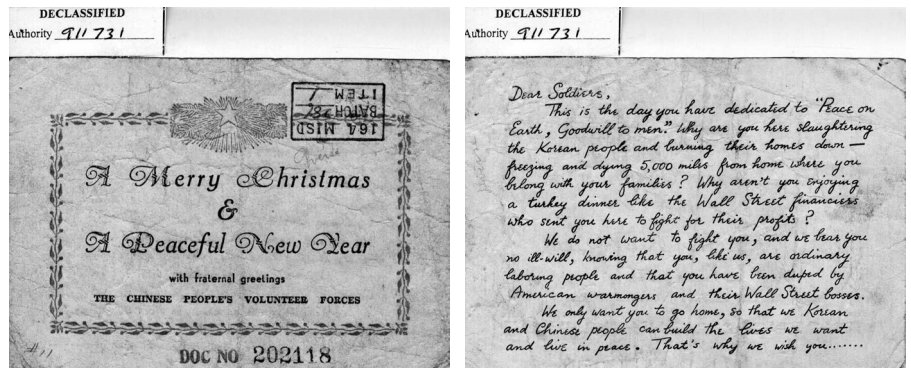 DECLASSIFIED
Authority 911731
164 MISD
BATCH
ITEM 1
A Merry Christmas
&
A Peaceful New Year
with fraternal greetings
THE CHINESE PEOPLE'S VOLUNTEER FORCES
#11
DOC NO 202118
DECLASSIFIED
Authority 911731
Dear Soldiers,
This is the day you have dedicated to "Peace on
Earth, Goodwill to men." Why are you here slaughtering
the Korean people and burning their homes down —
freezing and dying 5,000 miles from home where you
belong with your families? Why aren't you enjoying
a turkey dinner like the Wall Street financiers
who sent you here to fight for their profits?
We do not want to fight you, and we bear you
no ill-will, knowing that you, like us, are ordinary
laboring people and that you have been duped by
American warmongers and their Wall Street bosses.
We only want you to go home, so that we Korean
and Chinese people can build the lives we want
and live in peace. That's why we wish you.......